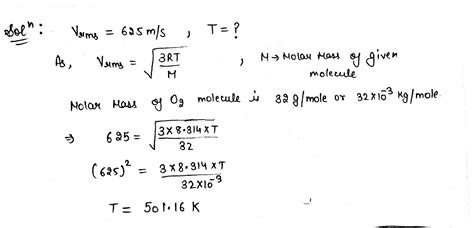 Solⁿ: Vrms = 625 m/s , T = ?
As, Vrms = √(3RT/M) , M → Molar Mass of given
molecule
Molar Mass of O₂ molecule is 32 g/mole or 32×10⁻³ kg/mole.
⇒ 625 = √(3×8.314×T/32)
(625)² = 3×8.314×T/32×10⁻³
T = 501.16 K